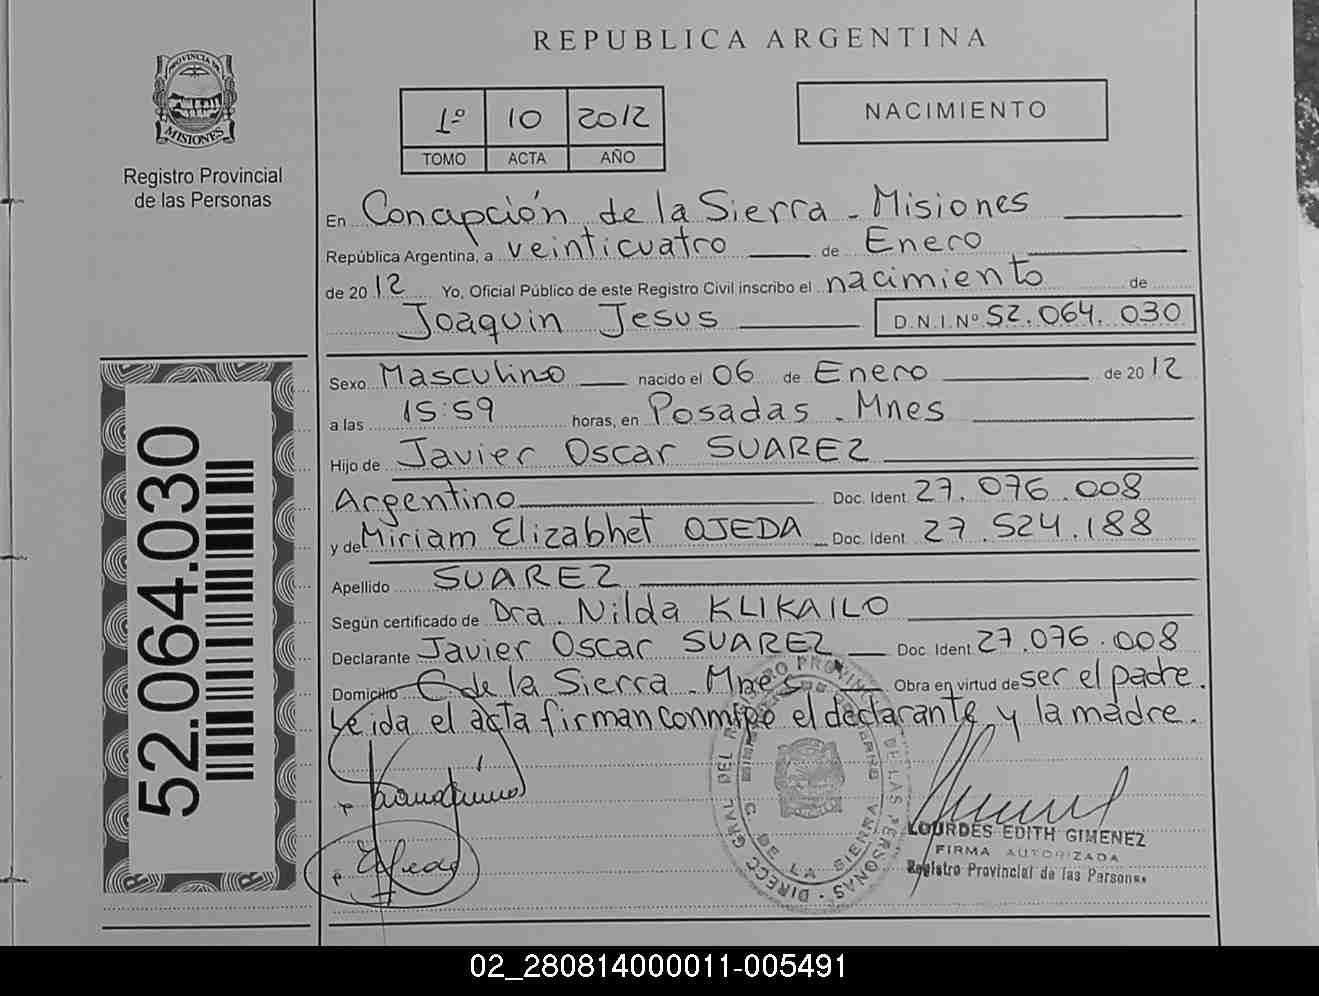 REPUBLICA ARGENTINA
PROVINCIA DE
MISIONES
Registro Provincial
de las Personas
1º 10 2012
TOMO ACTA AÑO
NACIMIENTO
En Concapción de la Sierra - Misiones
República Argentina, a veinticuatro de Enero
de 2012 Yo, Oficial Público de este Registro Civil inscribo el nacimiento de
Joaquin Jesus D.N.I.Nº 52.064.030
Sexo Masculino nacido el 06 de Enero de 2012
a las 15:59 horas, en Posadas - Mnes
Hijo de Javier Oscar SUAREZ
Argentino Doc. Ident 27.076.008
y de Miriam Elizabhet OJEDA Doc. Ident. 27.524.188
Apellido SUAREZ
Según certificado de Dra. Nilda KLIKAILO
Declarante Javier Oscar SUAREZ Doc. Ident 27.076.008
Domicilio C de la Sierra - Mnes Obra en virtud de ser el padre.
Leida el acta firman conmigo el declarante y la madre.
52.064.030
DIRECC GRAL DEL REGISTRO PROVINCIAL DE LAS PERSONAS
C. DE LA SIERRA
LOURDES EDITH GIMENEZ
FIRMA AUTORIZADA
Registro Provincial de las Personas
02_280814000011-005491